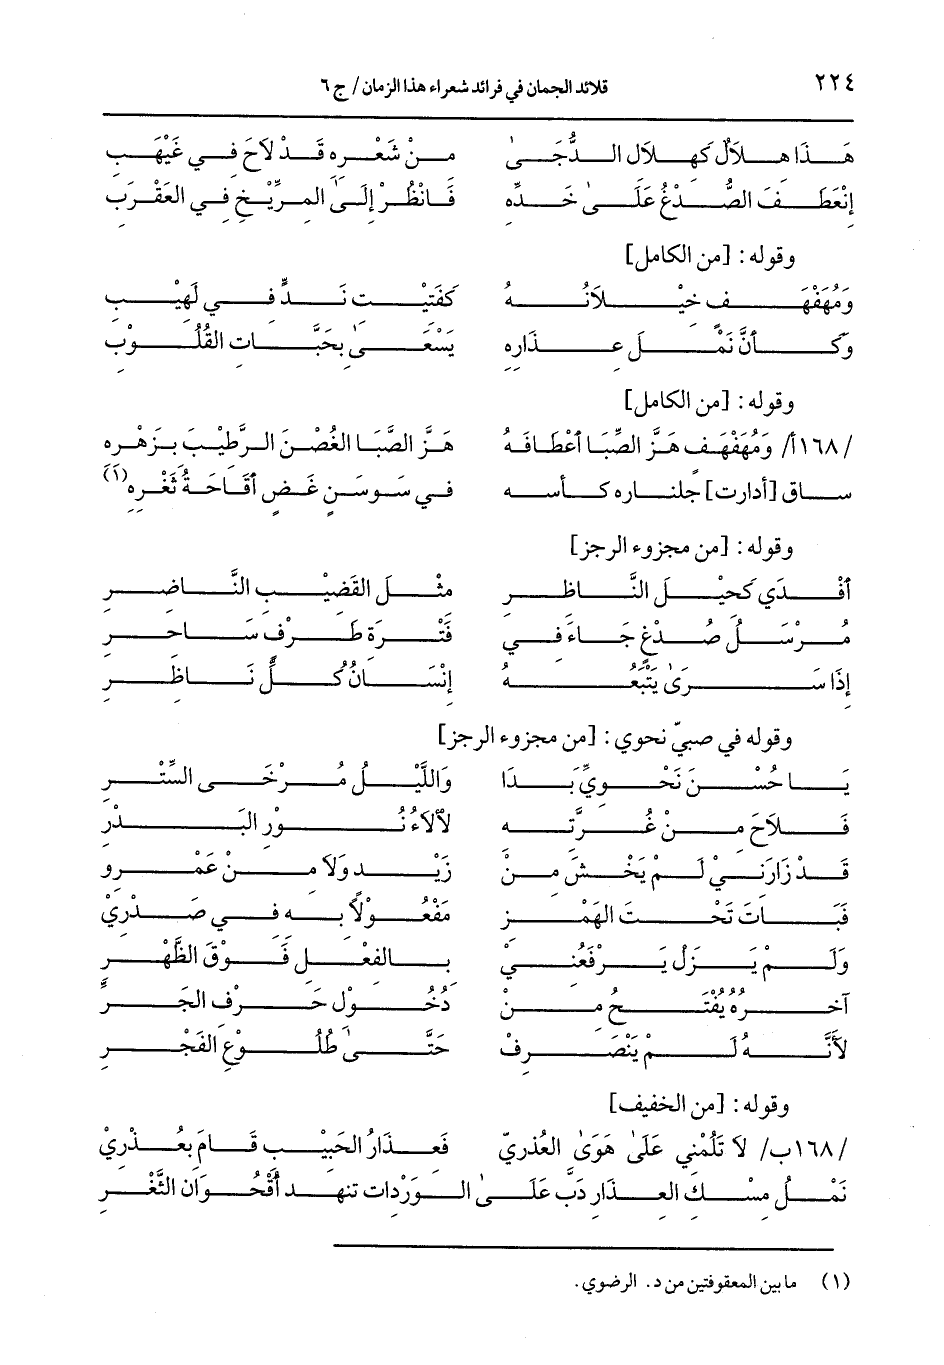 ٢٢٤ قلائد الجمان في فرائد شعراء هذا الزمان / ج ٦
هَذَا هِلاَلٌ كَهِلاَلِ الدُّجَىٰ مِنْ شَعْرِهِ قَدْ لاَحَ فِي غَيْهَبِ
إِنْعَطَفَ الصُّدْغُ عَلَىٰ خَدِّهِ فَانْظُرْ إِلَىٰ المِرِّيْخِ فِي العَقْرَبِ
وقوله: [من الكامل]
وَمُهَفْهَفٍ خِيْلاَنُهُ كَفَتِيْتِ نَدٍّ فِي لَهِيْبِ
وَكَأَنَّ نَمْلَ عِذَارِهِ يَسْعَىٰ بِحَبَّاتِ القُلُوْبِ
وقوله: [من الكامل]
/١٦٨أ/ وَمُهَفْهَفٍ هَزَّ الصِّبَا أَعْطَافَهُ هَزَّ الصَّبَا الغُصْنَ الرَّطِيْبَ بِزَهْرِهِ
سـاقٍ [أدارت] جلنـاره كـأسـه في سَوسَنٍ غَضٍ أَقَاحَةُ ثَغْرِهِ(١)
وقوله: [من مجزوء الرجز]
أَفْدِي كَحِيْلَ النَّاظِرِ مِثْلَ القَضِيْبِ النَّاضِرِ
مُرْسَلُ صُدْغٍ جَاءَ فِي فَتْرَةِ طَرْفٍ سَاحِرِ
إِذَا سَرَىٰ يَتْبَعُهُ إِنْسَانُ كُلِّ نَاظِرِ
وقوله في صبيّ نحوي: [من مجزوء الرجز]
يَا حُسْنَ نَحْوِيٍّ بَدَا وَاللَّيْلُ مُرْخَى السِّتْرِ
فَلاَحَ مِنْ غُرَّتِهِ لأْلاَءُ نُوْرِ البَدْرِ
قَدْ زَارَنِيْ لَمْ يَخْشَ مِنْ زَيْدٍ وَلاَ مِنْ عَمْرِو
فَبَاتَ تَحْتَ الهَمْزِ مَفْعُوْلاً بِهِ فِي صَدْرِيْ
وَلَمْ يَزَلْ يَرْفَعُنِيْ بِالفِعْلِ فَوْقَ الظَّهْرِ
آخِرُهُ يُفْتَحُ مِنْ دُخُوْلِ حَرْفِ الجَرِّ
لأَنَّهُ لَمْ يَنْصَرِفْ حَتَّىٰ طُلُوْعِ الفَجْرِ
وقوله: [من الخفيف]
/١٦٨ب/ لاَ تَلُمْنِي عَلَىٰ هَوَىٰ العُذرِيّ فَعِذَارُ الحَبِيْبِ قَامَ بِعُذْرِيْ
نَمْلُ مِسْكِ العِذَارِ دَبَّ عَلَىٰ الوَرْدَاتِ تنهد أُقْحُوَانِ الثَّغْرِ
(١) ما بين المعقوفتين من د. الرضوي.